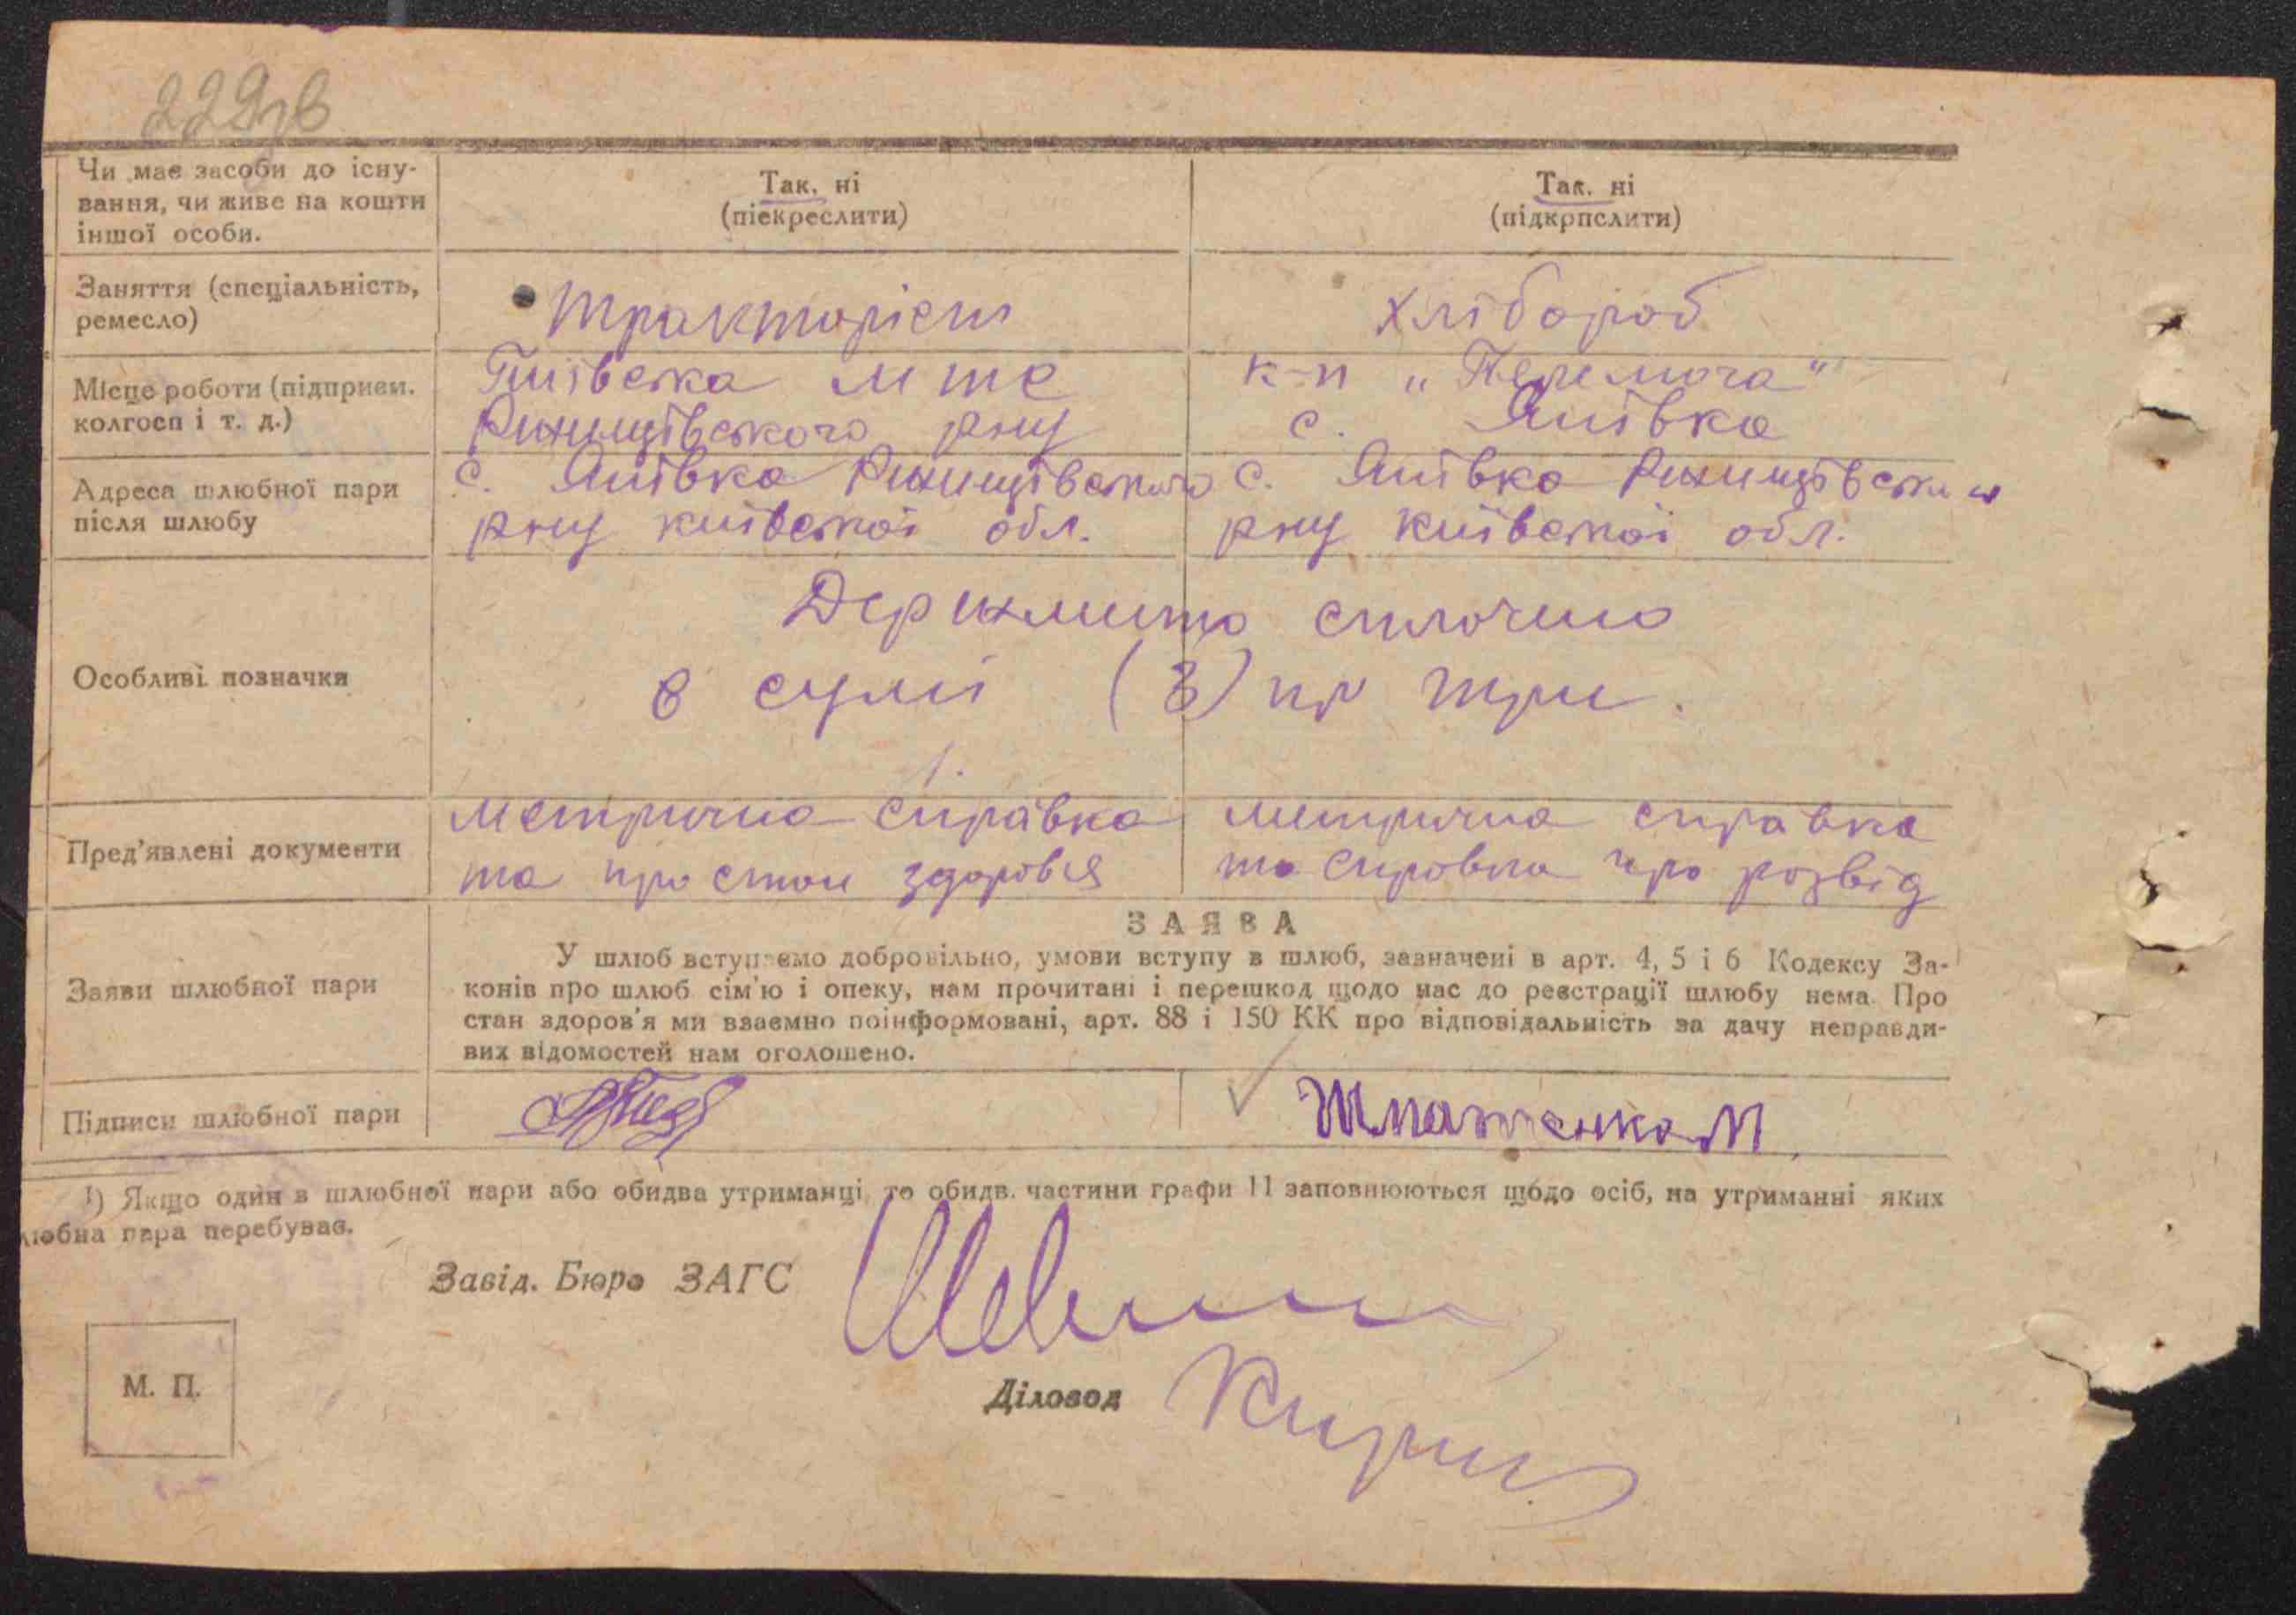 229зв
Чи має засоби до існу-
вання, чи живе на кошти
іншої особи.
Так, ні
(піекреслити)
Так. ні
(підкрпслити)
Заняття (спеціальність,
ремесло)
тракторіст
хлібороб
Місце роботи (підприєм.
колгосп і т. д.)
мтс
Ржищівського рну
к-п „Перемога"
с. Яшівка
Адреса шлюбної пари
після шлюбу
с. Яшівка Ржищівського
рну київської обл.
с. Яшівка Ржищівськ
рну київської обл.
Особливі позначки
Держмито сплочено
в сумі (3) кр три.
Пред'явлені документи
метрична справка
та про стан здоровья
метрична справка
та справка про розвід
ЗАЯВА
Заяви шлюбної пари
У шлюб вступаємо добровільно, умови вступу в шлюб, зазначені в арт. 4, 5 і 6 Кодексу За-
конів про шлюб сім'ю і опеку, нам прочитані і перешкод щодо нас до реєстрації шлюбу нема. Про
стан здоров'я ми взаємно поінформовані, арт. 88 і 150 КК про відповідальність за дачу неправди-
вих відомостей нам оголошено.
Підписи шлюбної пари
М
1) Якщо один в шлюбної пари або обидва утриманці, то обидв. частини графи 11 заповнюються щодо осіб, на утриманні яких
любна пара перебуває.
Завід. Бюро ЗАГС
М. П.
Діловод